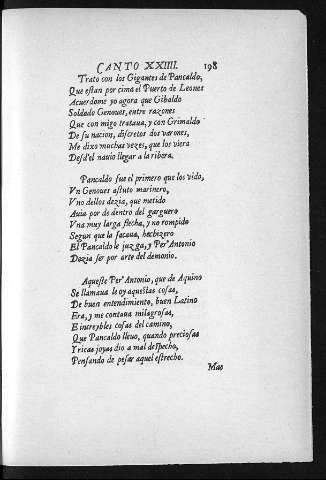 CANTO XXIIII. 198
Trato con los Gigantes de Pancaldo,
Que estan por cima el Puerto de Leones
Acuerdome yo agora que Gibaldo
Soldado Genoues, entre razones
Que con migo trataua, y con Grimaldo
De su nacion, discretos dos varones,
Me dixo muchas vezes, que los viera
Desd'el nauio llegar a la ribera.
Pancaldo fue el primero que los vido,
Vn Genoues astuto marinero,
Vno dellos dezia, que metido
Auia por de dentro del garguero
Vna muy larga flecha, y no rompido
Segun que la sacaua, hechizero
El Pancaldo le juzga, y Per' Antonio
Dezia ser por arte del demonio.
Aqueste Per' Antonio, que de Aquino
Se llamaua le oy aquestas cosas,
De buen entendimiento, buen Latino
Era, y me contaua milagrosas,
E increybles cosas del camino,
Que Pancaldo lleuo, quando preciosas
Y ricas joyas dio a mal despecho,
Pensando de pasar aquel estrecho.
Mas